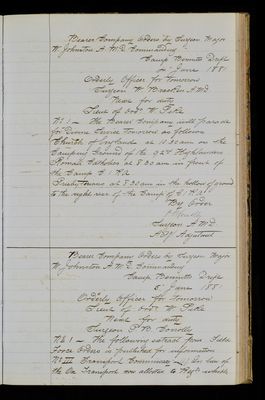 Bearer Company Orders by Surgeon Major
W. Johnston A.M.D. Commanding
Camp Bennetts Drift
4 June 1881
Orderly Officer for tomorrow
Surgeon W
Next for duty
Lieut of Ord: W Pitt
No 1 – The Bearer Company will parade
for Divine Service tomorrow as follows
Church of England at 10 30 am on the
Camping Ground of the 92nd Highlanders
Roman Catholics at 8 30 am in front of
the Camp
Presbyterians at 8 30 am in the hollow of ground
to the right rear of the Camp of
By Order
Surgeon A.M.D.
Adjutant
Bearer Company Orders by Surgeon Major
W Johnston A.M.D. Commanding
Camp Bennetts Drift
5 June 1881
Orderly Officer for Tomorrow
Lieut of Ord: W Pitt
Next for duty
Surgeon P. B. Conolly
No 1 – The following extract from Field
Force Orders is published for information
No III Transport Committee In lieu of
the Ox Transport now allotted to which